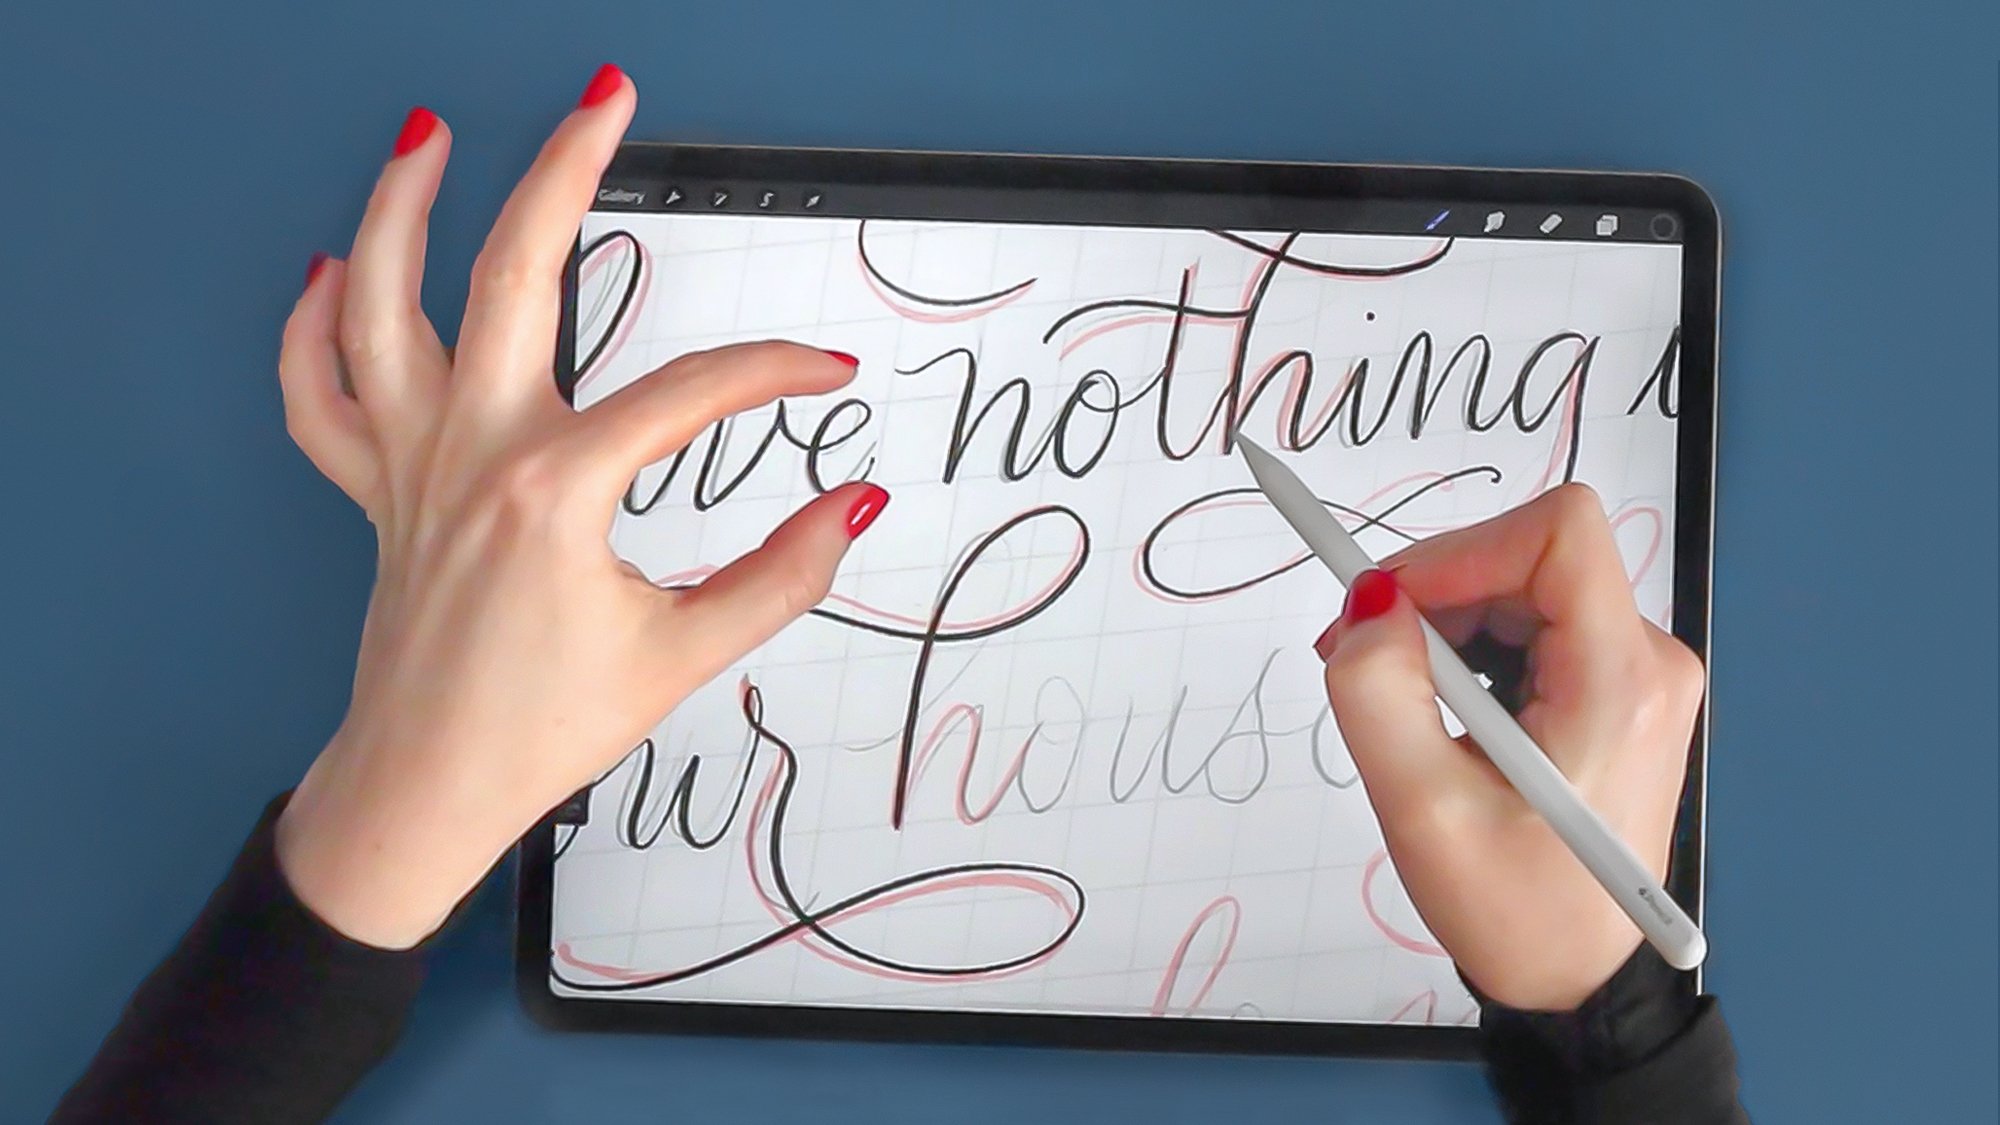 Gallery
ve nothing
ur hous
Pencil